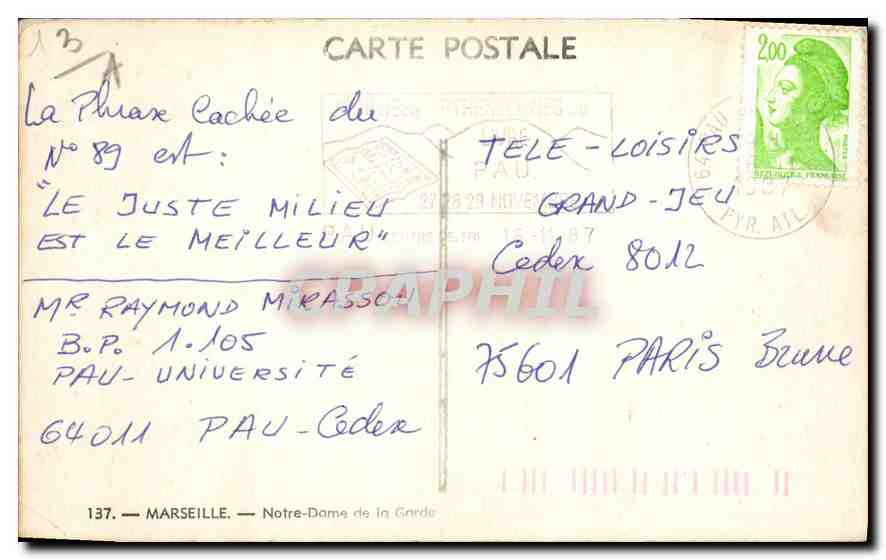 13
A
CARTE POSTALE
2,00
REPUBLIQUE FRANCAISE
La Phrase Cachée du
N° 89 est :
"LE JUSTE MILIEU
EST LE MEILLEUR"
Mr. RAYMOND MIRASSOU
B.P. 1.105
PAU - UNIVERSITÉ
64011 PAU - Cedex
PAU
27 28 29 NOVEMBRE
16-11-87
PYR. ATL.
TELE - LOISIRS
GRAND - JEU
Cedex 8012
75601 PARIS Brune
CPAPHIL
137. — MARSEILLE. — Notre-Dame de la Garde